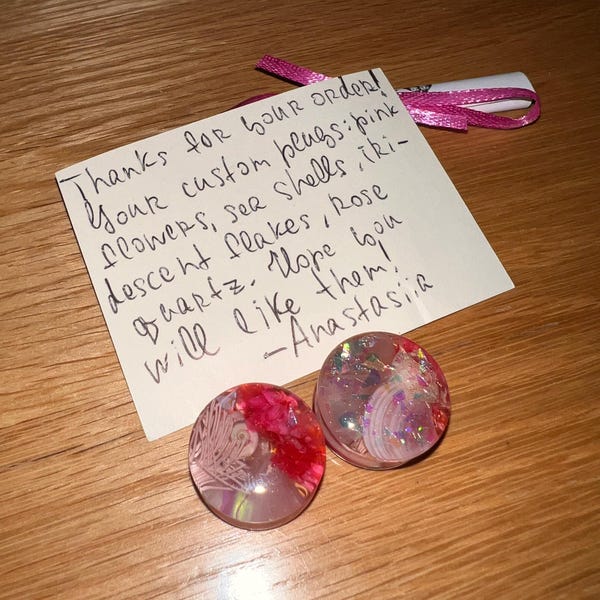 Thanks for your order!
Your custom plugs: pink
flowers, sea shells, iri-
descent flakes, rose
quartz. Hope you
will like them!
-Anastasiia